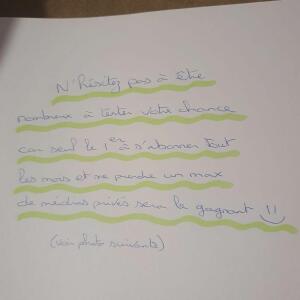 N'hésitez pas à être
nombreux à tenter votre chance
car seul le 1er à s'abonner tout
les mois et me prendre un max
de médias privés sera la gagnant !!
(voir photo suivante)